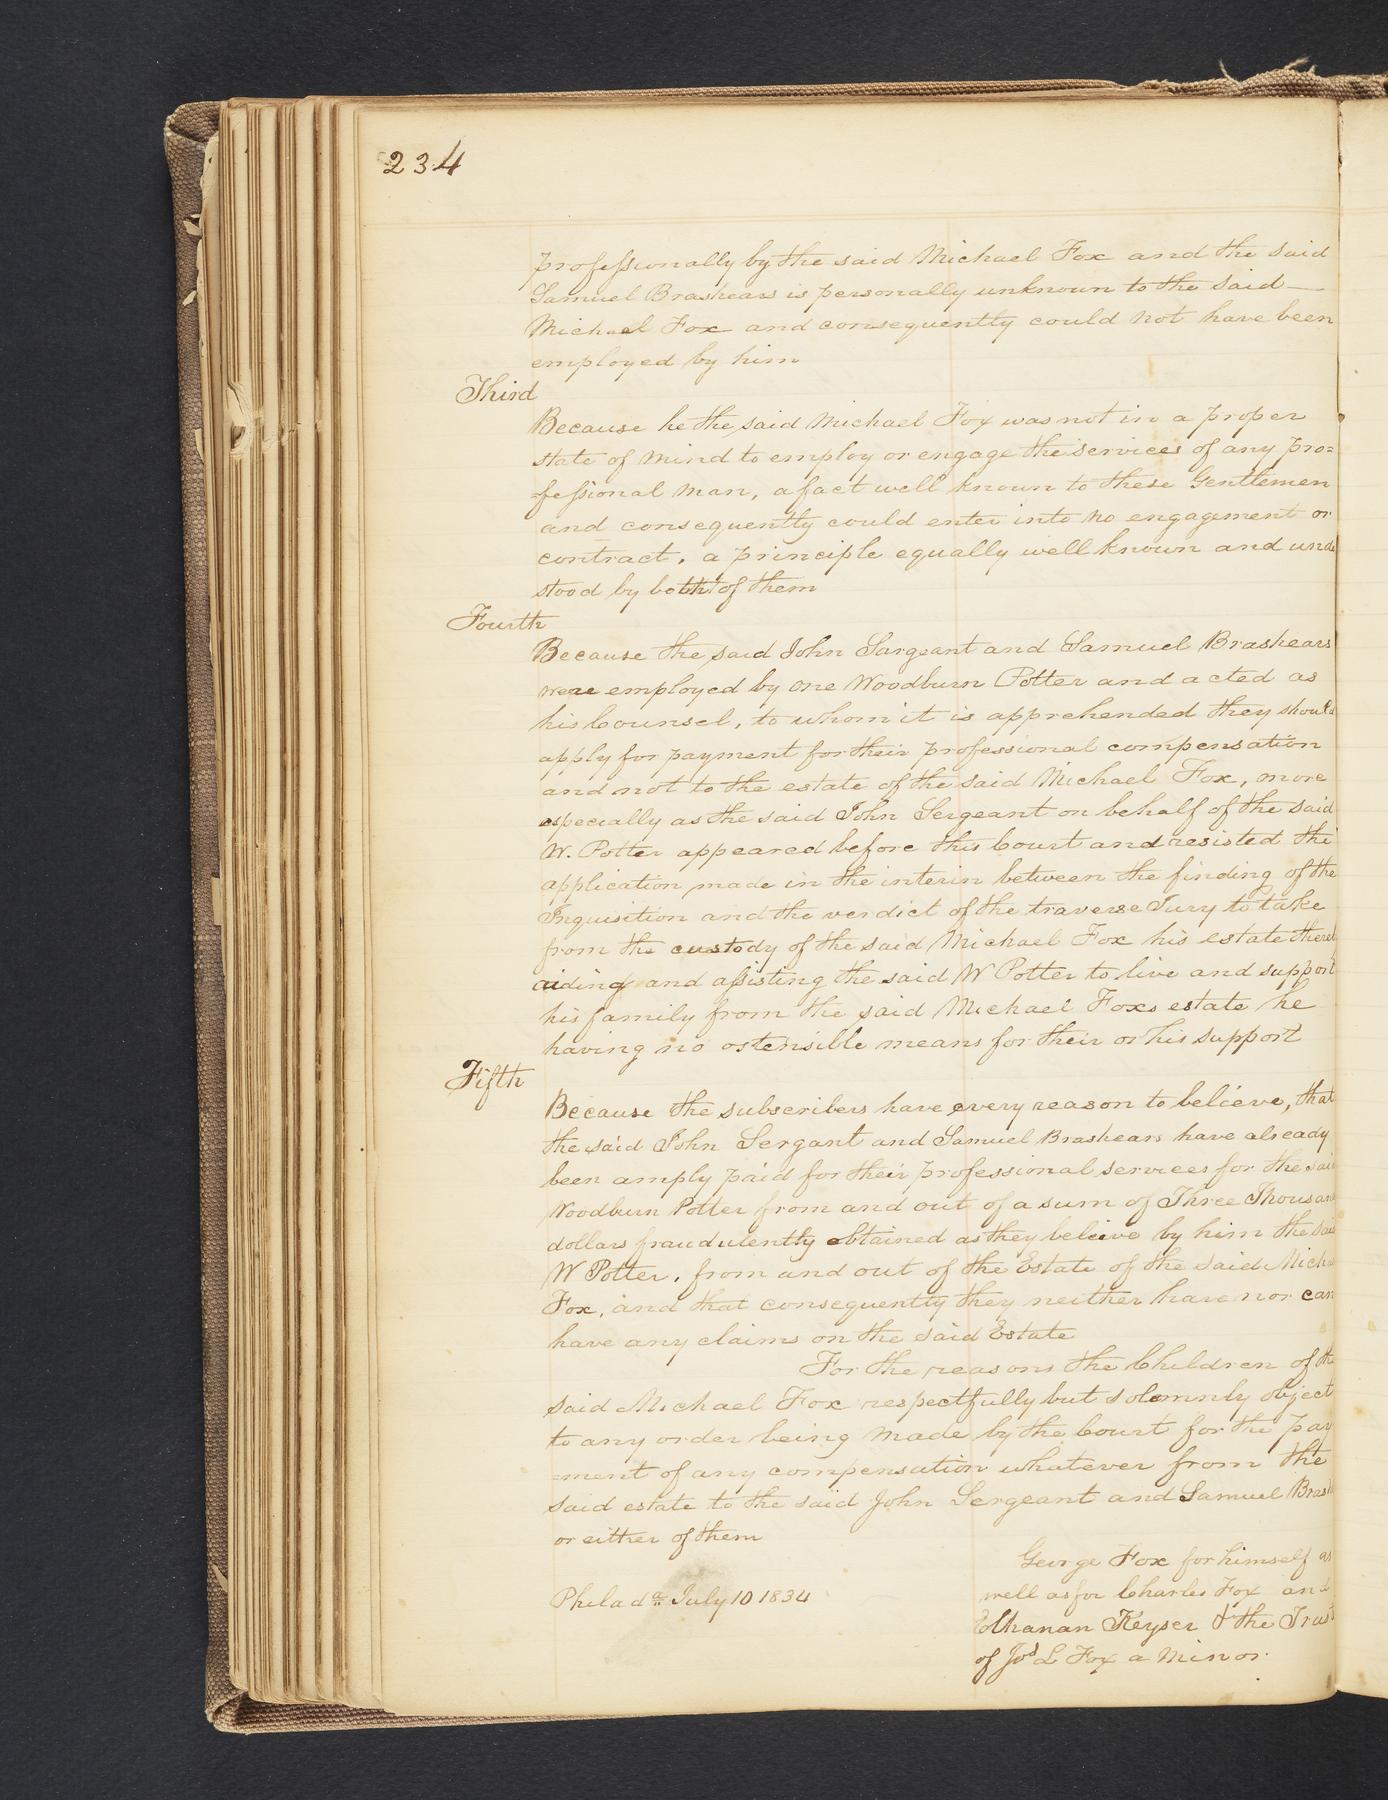 234
professionally by the said Michael Fox and the said
Samuel Brashears is personally unknown to the said—
Michael Fox and consequently could not have been
employed by him
Third
Because he the said Michael Fox was not in a proper
state of mind to employ or engage the services of any pro=
=fessional man, a fact well known to these Gentlemen
and consequently could enter into no engagement or
contract, a principle equally well known and unde
stood by both of them
Fourth
Because the said John Sargeant and Samuel Brashears
were employed by one Woodburn Potter and acted as
his Counsel, to whom it is apprehended they should
apply for payment for their professional compensation
and not to the estate of the said Michael Fox, more
especially as the said John Sergeant on behalf of the said
W. Potter appeared before this Court and resisted the
application made in the interim between the finding of the
Inquisition and the verdict of the traverse Jury to take
from the custody of the said Michael Fox his estate thereb
aiding and assisting the said W Potter to live and support
his family from the said Michael Foxs estate he
having no ostensible means for their or his support
Fifth
Because the subscribers have every reason to believe, that
the said John Sergant and Samuel Brashears have already
been amply paid for their professional services for the said
Woodburn Potter from and out of a sum of Three Thousand
dollars fraudulently obtained as they beleive by him the said
W Potter, from and out of the Estate of the said Micha
Fox, and that consequently they neither have nor can
have any claims on the said Estate
For the reasons the Children of the
said Michael Fox respectfully but solomnly object
to any order being made by the Court for the pay
=ment of any compensation whatever from the
said estate to the said John Sergeant and Samuel Brash
or either of them
George Fox for himself as
Philada July 10 1834
well as for Charles Fox and
Eolhanan Keyser & the Trust
of Jos L Fox a Minor.